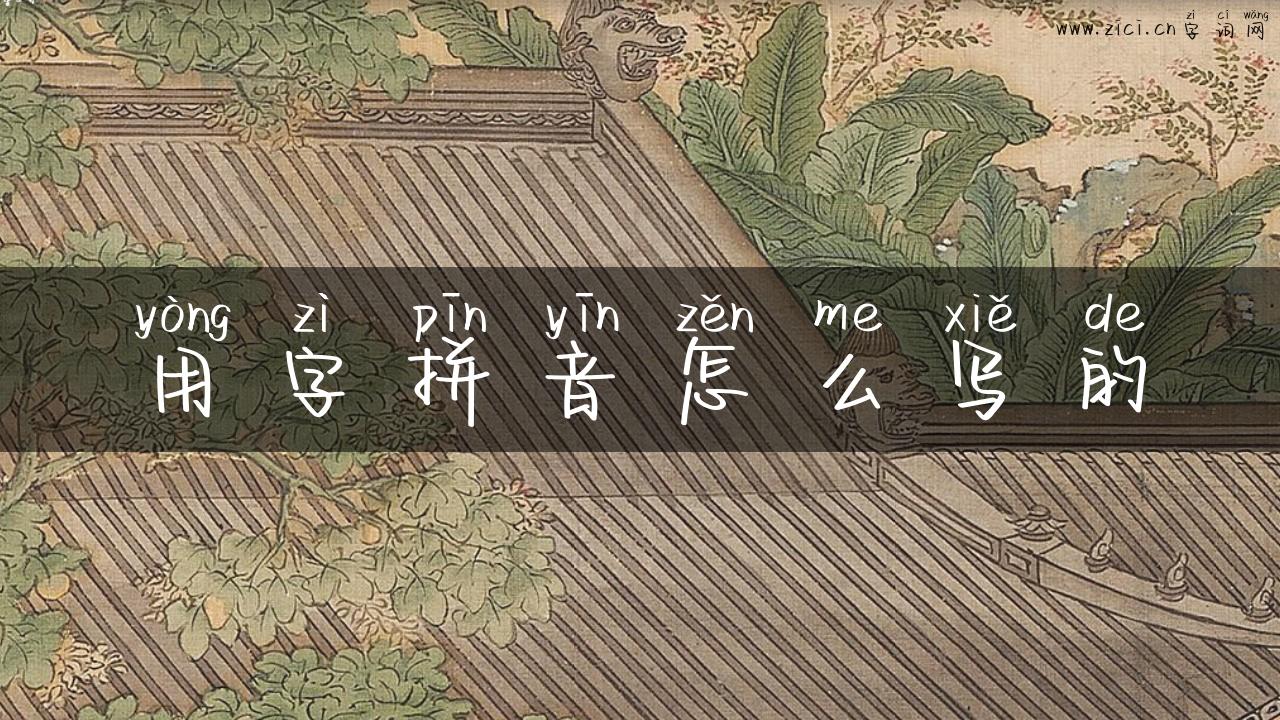 zì cí wǎng
www.zici.cn 字词网
yòng zì pīn yīn zěn me xiě de
用字拼音怎么写的